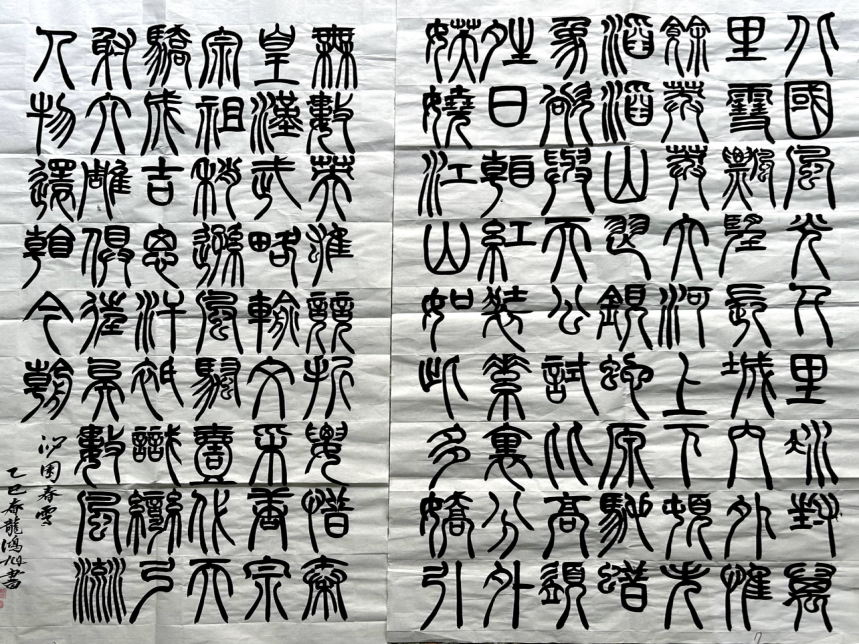 北國風光千里冰封萬
里雪飄望長城內外惟
餘莽莽大河上下頓失
滔滔山舞銀蛇原馳蠟
象欲與天公試比高須
晴日看紅裝素裹分外
妖嬈江山如此多嬌引
無數英雄競折腰惜秦
皇漢武略輸文采唐宗
宋祖稍遜風騷壹代天
驕成吉思汗祇識彎弓
射大雕俱往矣數風流
人物還看今朝
沁園春雪
乙巳春龍鴻旭書